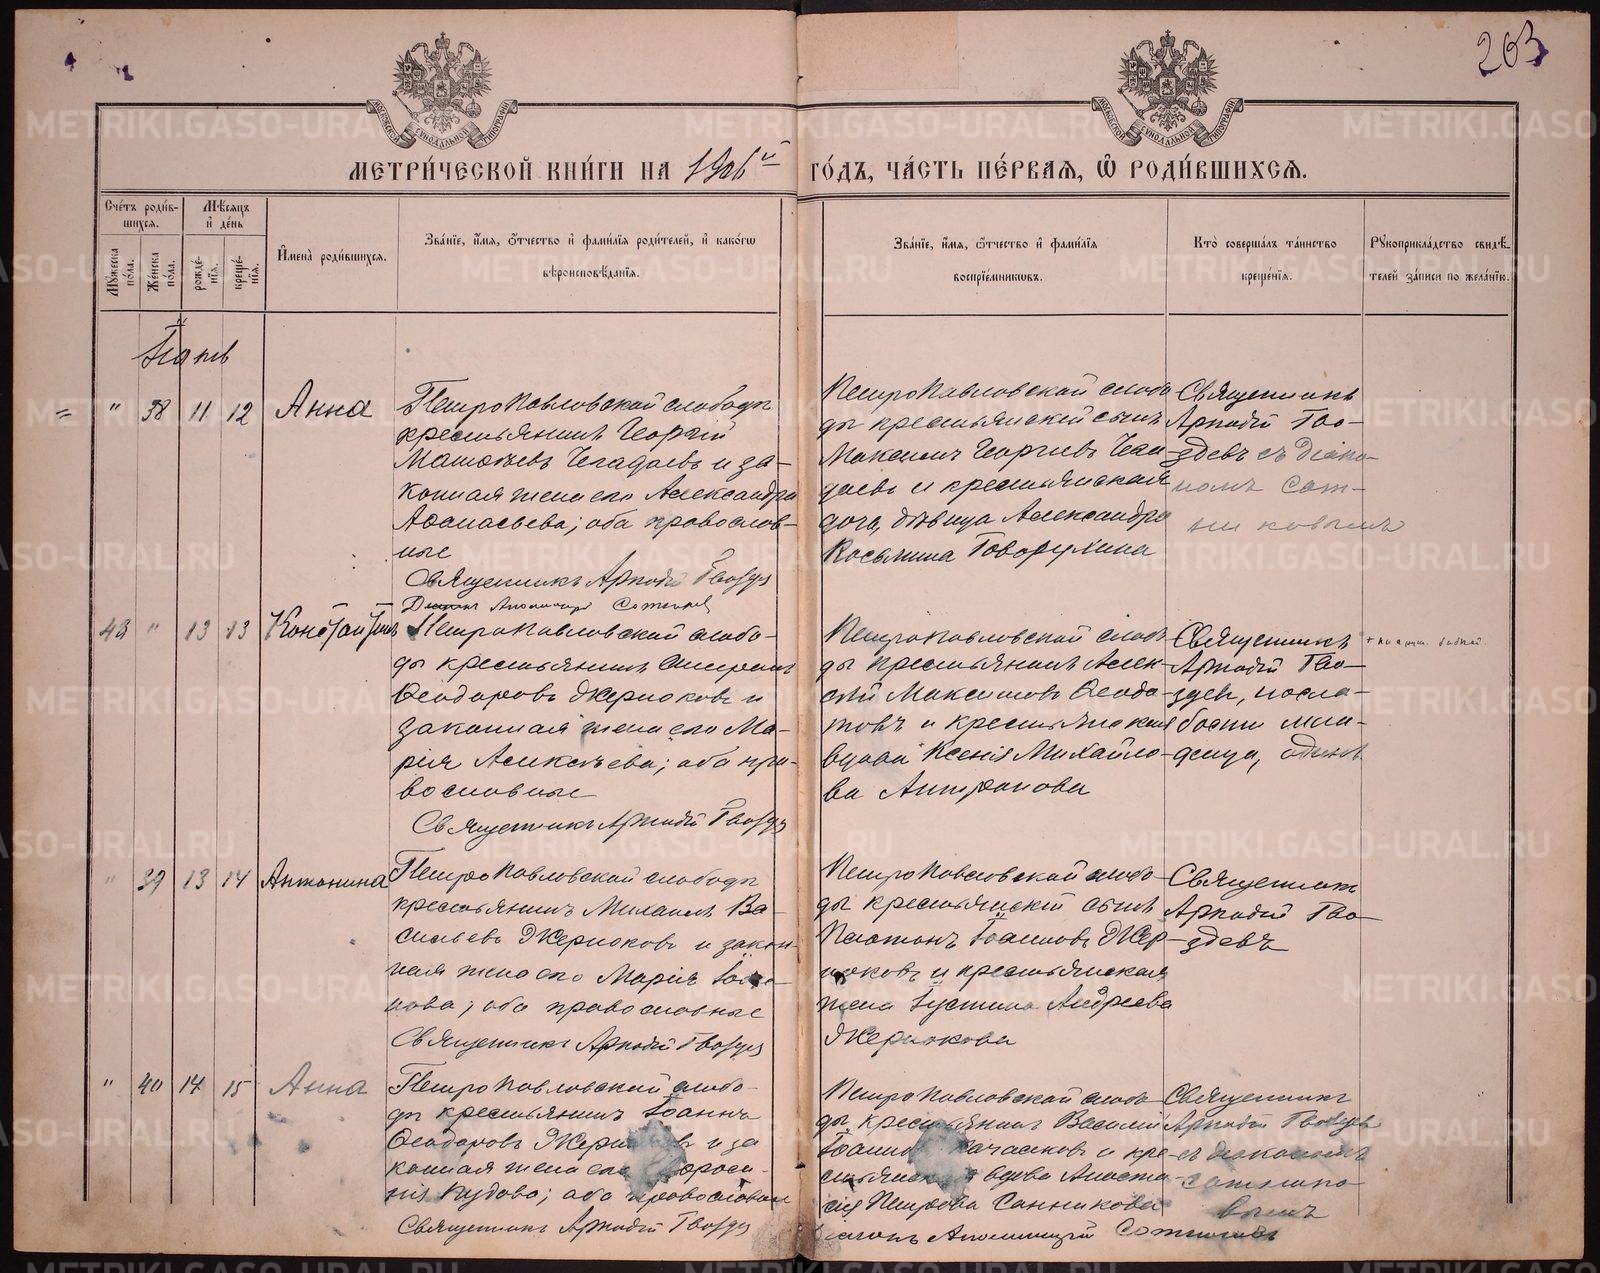 263
МЕТРИ́ЧЕСКОЙ КНИ́ГИ НА 1906й ГО́ДЪ, ЧА́СТЬ ПЕ́РВАЯ, Ѡ҆ РОДИ́ВШИХСѦ.
Сче́тъ роди́вшихсѧ.
Мꙋ́жеска по́ла.
Же́нска по́ла.
Мѣ́сѧцъ и҆ де́нь
рожде́нїѧ.
креще́нїѧ.
И҆мена̀ роди́вшихсѧ.
Зва́нїе, и҆́мѧ, ѻ҆́тчество и҆ фами́лїѧ роди́телей, и҆ како́гѡ
вѣроисповѣ́данїѧ.
Зва́нїе, и҆́мѧ, ѻ҆́тчество и҆ фами́лїѧ
воспрїе́мникѡвъ.
Кто̀ соверша́лъ та́инство
креще́нїѧ.
Рꙋкоприкла́дство свидѣ́телей за́писи по жела́нїю.
" 38 11 12 Анна
Петропавловской слободы
крестьянинъ Георгій
и за-
конная жена его Александра
Аѳанасьева; оба православ-
ные
Священникъ Аркадій Гвоздев
Петропавловской слобо-
ды крестьянскій сынъ
Максимъ Георгіевъ
и крестьянская
дочь, дѣвица Александра
Косьмина Говорухина
Священникъ
Аркадій Гво-
здевъ съ діако-
номъ Сот-
никовымъ
43 " 13 13 Константинъ
Петропавловской слобо-
ды крестьянинъ
Ѳеодоровъ Жернаковъ и
законная жена его Ма-
рія Алексѣева; оба пра-
вославные
Священникъ Аркадій Гвоздев
Петропавловской слобо-
ды крестьянинъ Алек-
сѣй Максимовъ
и крестьянская
вдова Ксенія Михайло-
ва Антропова
Священникъ
Аркадій Гво-
здев,
одинъ
" 39 13 14 Антонина
Петропавловской слободы
крестьянинъ Михаилъ Ва-
сильевъ Жернаковъ и закон-
ная жена его Марія Іоан-
нова; оба православные
Священникъ Аркадій Гвоздев
Петропавловской слобо-
ды крестьянскій сынъ
Платонъ Іоанновъ Жер-
наковъ и крестьянская
жена Іустина Андреева
Жернакова
Священникъ
Аркадій Гво-
здевъ
" 40 14 15 Анна
Петропавловской слобо-
ды крестьянинъ Іоаннъ
Ѳеодоровъ и за
конная жена его
оба православные
Священникъ Аркадій Гвоздев
Петропавловской слобо-
ды крестьянинъ Василій
и кре-
вдова Анаста-
сія Петрова Санникова
Священникъ
Аркадій Гвоздевъ
съ діакономъ
Сотнико-
вымъ
Діаконъ Аполлинарій Сотниковъ
METRIKI.GASO-URAL.RU